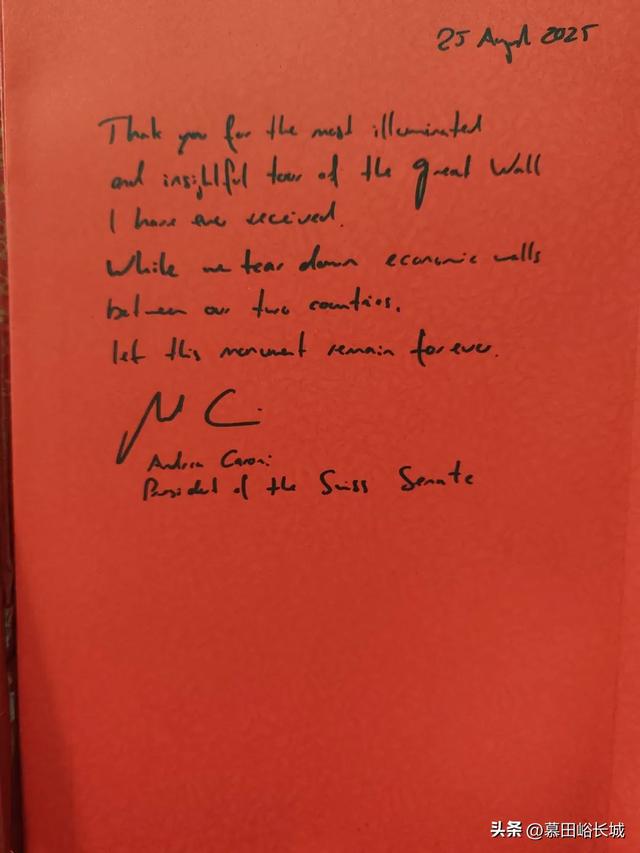 25 August 2025
Thank you for the most illuminated
and insightful tour of the great Wall
I have ever received.
While we tear down economic walls
between our two countries,
let this monument remain forever.
Andrea Caroni
President of the Swiss Senate
头条 @慕田峪长城